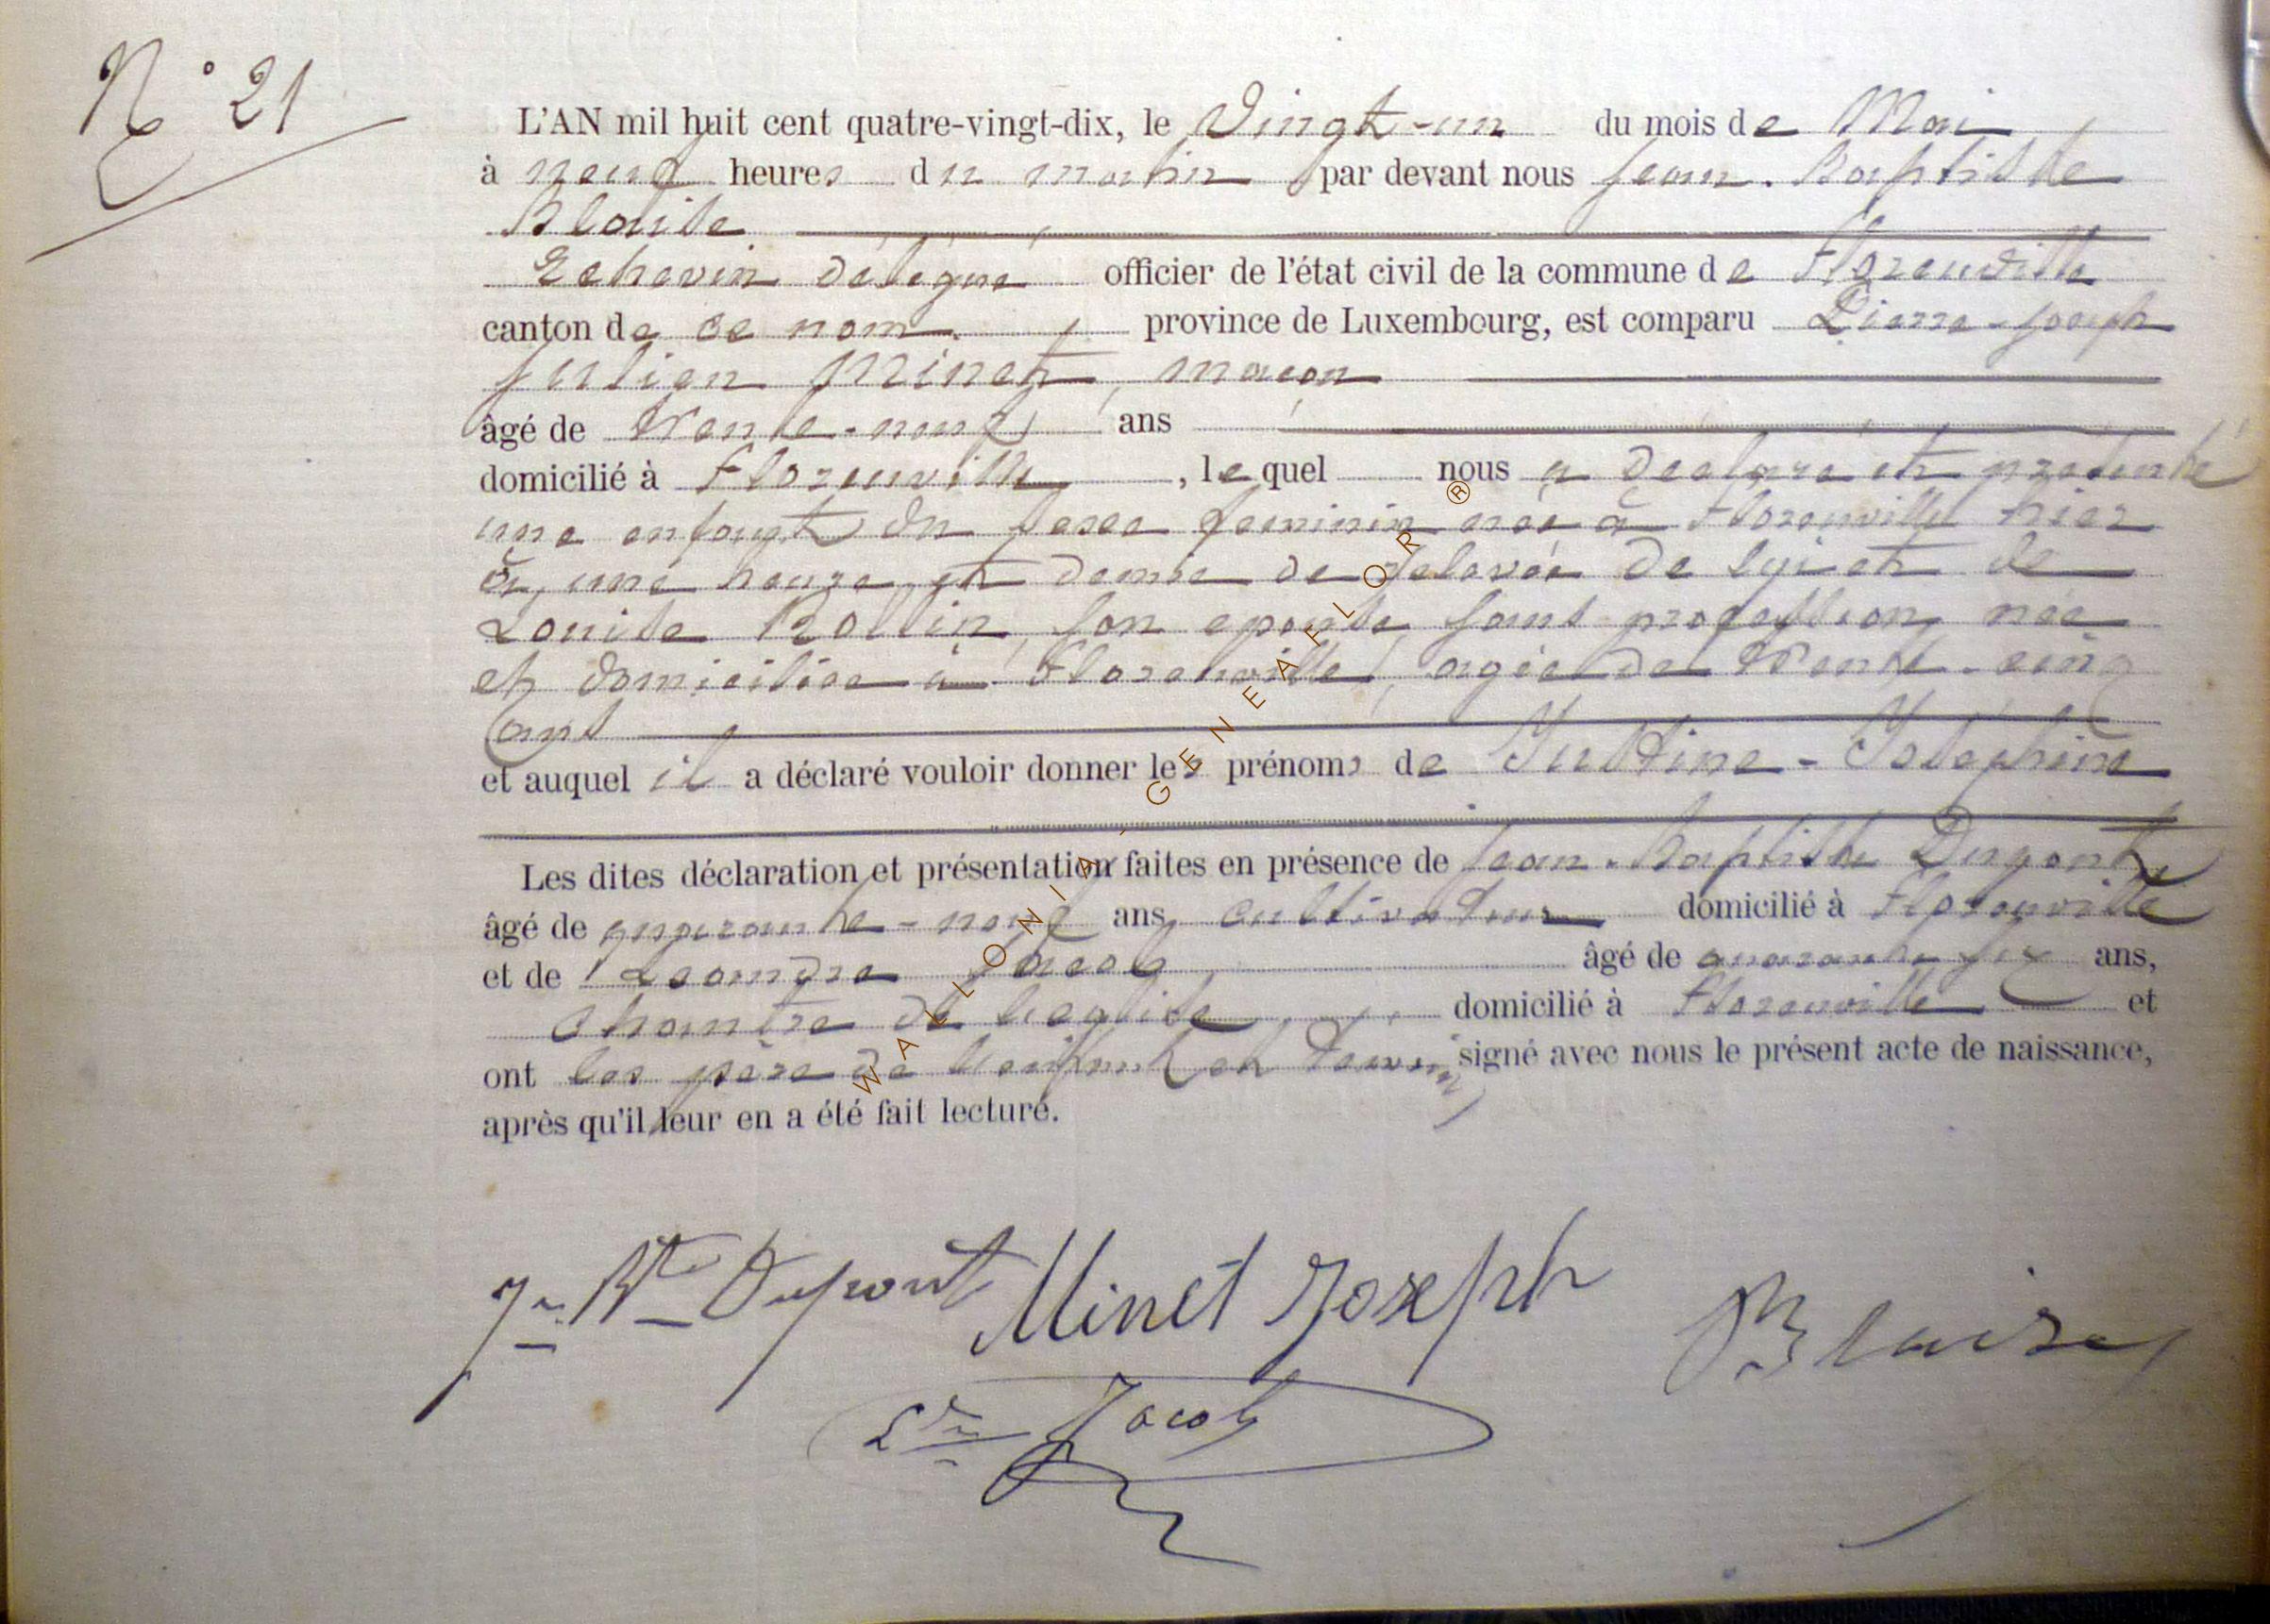 N° 21
L'AN mil huit cent quatre-vingt-dix, le Vingt-un du mois de Mai
à neuf heures du matin par devant nous Jean-Baptiste
Blaise
Echevin délégué officier de l'état civil de la commune de Florenville
canton de ce nom province de Luxembourg, est comparu Pierre-Joseph
Julien Minet, maçon
âgé de trente-neuf ans
domicilié à Florenville, lequel nous a déclaré et présenté
une enfant du sexe féminin née à Florenville hier
à une heure et demie de relevée de lui et de
Louise Rollin, son épouse sans profession, née
et domiciliée à Florenville, agée de trente-cinq
ans
et auquel il a déclaré vouloir donner les prénoms de Justine-Joséphine
Les dites déclaration et présentation faites en présence de Jean-Baptiste Dupont
âgé de quarante-neuf ans, cultivateur domicilié à Florenville
et de Léandre Jacob âgé de quarante six ans,
chantre de l'eglise domicilié à Florenville et
ont les père de l'enfant et témoins signé avec nous le présent acte de naissance,
après qu'il leur en a été fait lecture.
Jn Bte Dupont Minet Joseph Blaise
Lre Jacob
WALLONIA - GENEAFLOR ®